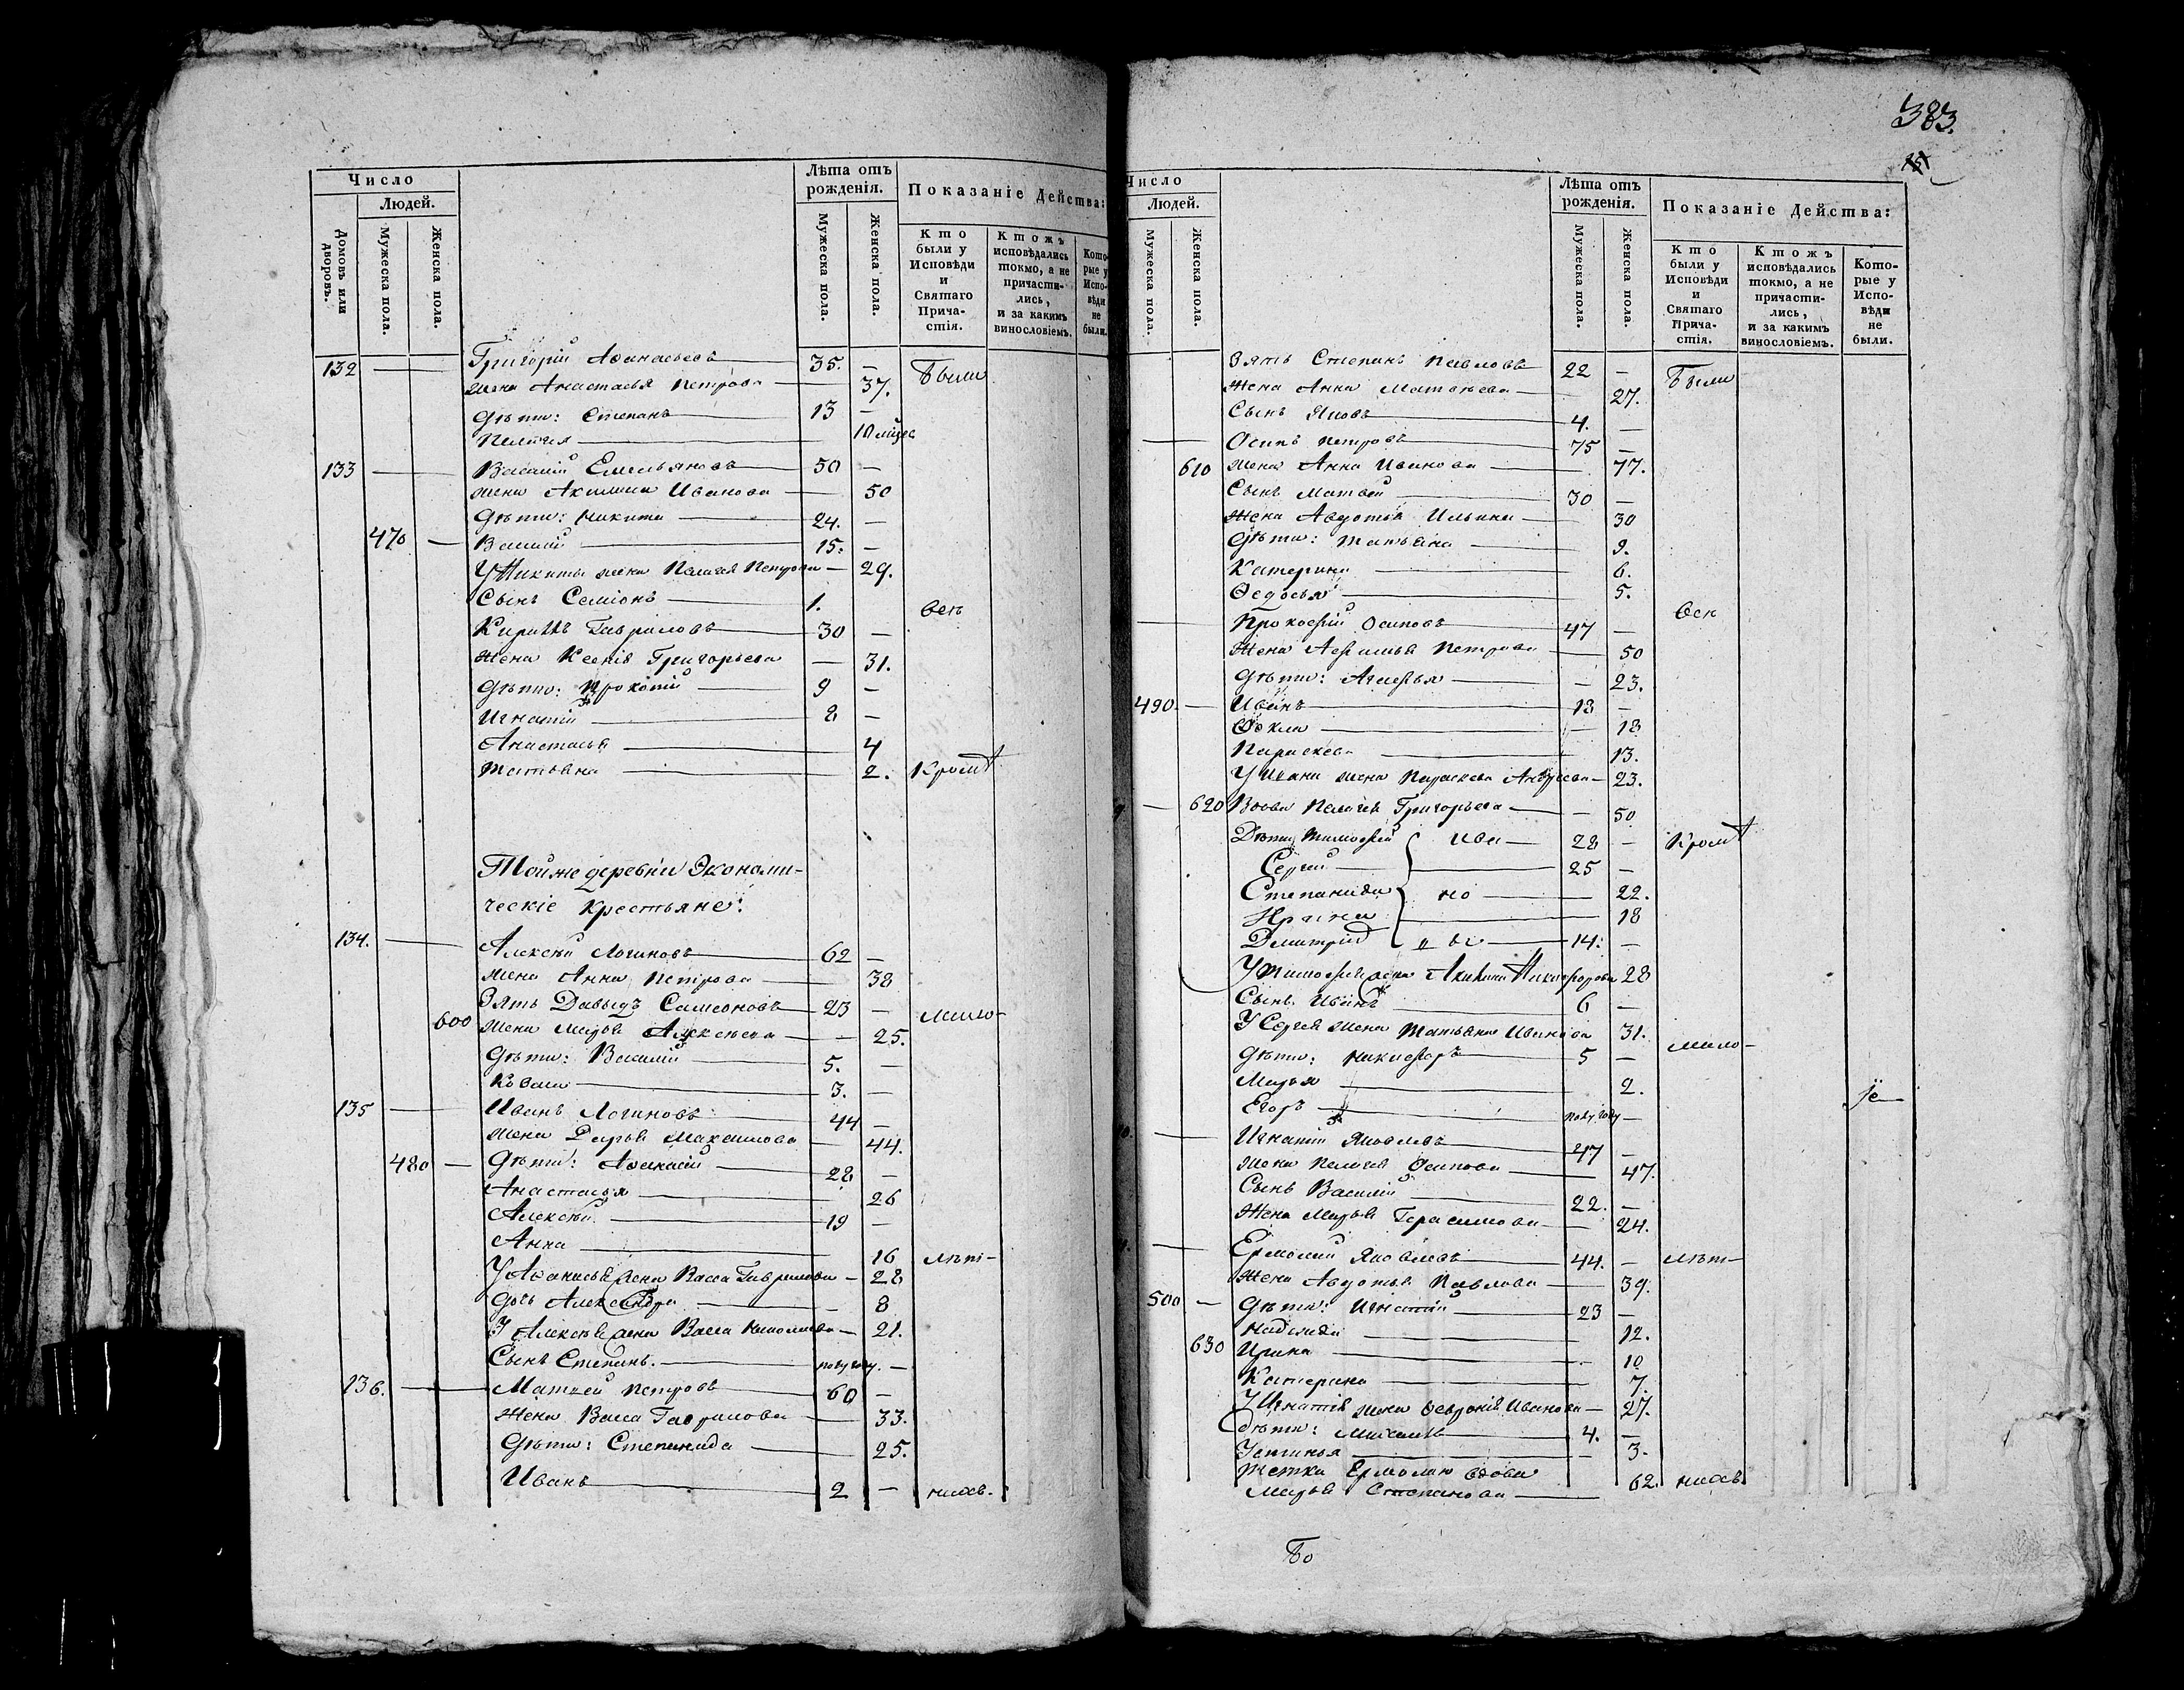 Число
Людей.
Домовъ или дворовъ.
Мужеска пола.
Женска пола.
Лѣта отъ рожденія.
Мужеска пола.
Женска пола.
Показаніе Действа:
Кто были у Исповѣди и Святаго Причастія.
Ктожъ исповѣдались токмо, а не причастились, и за какимъ винословіемъ.
Которые у Исповѣди не были.
132 — Григорій Аѳанасьевъ — 35. — Были
жена Анастасья Петрова — 37.
дѣти: Степанъ — 13 —
Пелагея — 10
133 — Василій Емельяновъ — 50 —
жена Акилина Иванова — 50
дѣти: Никита — 24. —
470 — Василій — 15. —
У Никиты жена Пелагея Петрова — 29.
Сынъ Семіонъ — 1. всѣ
Кирилъ Гавриловъ — 30 —
жена Ксенія Григорьева — 31.
дѣти: Прокопій — 9 —
Игнатій — 8 —
Анастасья — 4
Татьяна — 2. Кромѣ
Той же деревни Экономи-
ческіе Крестьяне.
134. — Алексѣй Логиновъ — 62 —
жена Анна Петрова — 38
Зять Давыдъ Самсоновъ — 23 — мало-
600 жена Марья Алексѣева — 25.
дѣти: Василій — 5. —
Козма — 3. —
135 — Иванъ Логиновъ — 44 —
жена Дарья Максимова — 44.
480 — дѣти: Аѳанасій — 28 —
Анастасья — 26
Алексѣй — 19 —
Анна — 16 лѣт-
У Аѳанасья жена Васса Гаврилова — 28
дочь Александра — 8
У Алексѣя жена Васса — 21.
Сынъ Степанъ. — полугоду. —
136. — Матвей Петровъ — 60 —
жена Васса Гаврилова — 33.
дѣти: Степанида — 25.
Иванъ — 2 — нихъ.
383.
15.
Число
Людей.
Мужеска пола.
Женска пола.
Лѣта отъ рожденія.
Мужеска пола.
Женска пола.
Показаніе Действа:
Кто были у Исповѣди и Святаго Причастія.
Ктожъ исповѣдались токмо, а не причастились, и за какимъ винословіемъ.
Которые у Исповѣди не были.
Зять Степанъ Павловъ — 22 — Были
жена Анна Матвѣева — 27.
Сынъ Яковъ — 4. —
Осипъ Петровъ — 75 —
610 жена Анна Иванова — 77.
Сынъ Матвей — 30 —
жена Авдотья Ильина — 30
дѣти: Татьяна — 9.
Катерина — 6.
Ѳедосья — 5.
Прокофій Осиповъ — 47 — всѣ
жена Петрова — 50
дѣти: Агафья — 23.
490. — Иванъ — 18 —
Ѳекла — 18
Параскева — 13.
У Ивана жена Параскева Андреева — 23.
620 Вдова Пелагея Григорьева — 50
Дѣти Тимофей Ива — 28 — Кромѣ
Сергей — 25 —
Степанида но — 22.
Ирина — 18
Дмитрій вы — 14. —
У Тимофея жена Акилина Никифорова 28
Сынъ Иванъ 6 —
У Сергея жена Татьяна Иванова 31.
дѣти: Никифоръ — 5 — мало-
Марья — 2.
Егоръ — полугоду —
Игнатій Яковлевъ — 47 —
жена Пелагея Осипова — 47.
Сынъ Василій — 22. —
жена Марья Герасимова — 24.
Ермолай Яковлевъ — 44. — лѣт-
жена Авдотья Павлова — 39.
500 — дѣти: Игнатій — 23 —
Надежда — 12.
630 Ирина — 10
Катерина — 7.
У Игнатія жена Ѳевронія Иванова — 27.
дѣти: Михаилъ — 4. —
Устинья — 3.
Тетка Ермолаю вдова
Марья Степанова — 62. нихъ
Во